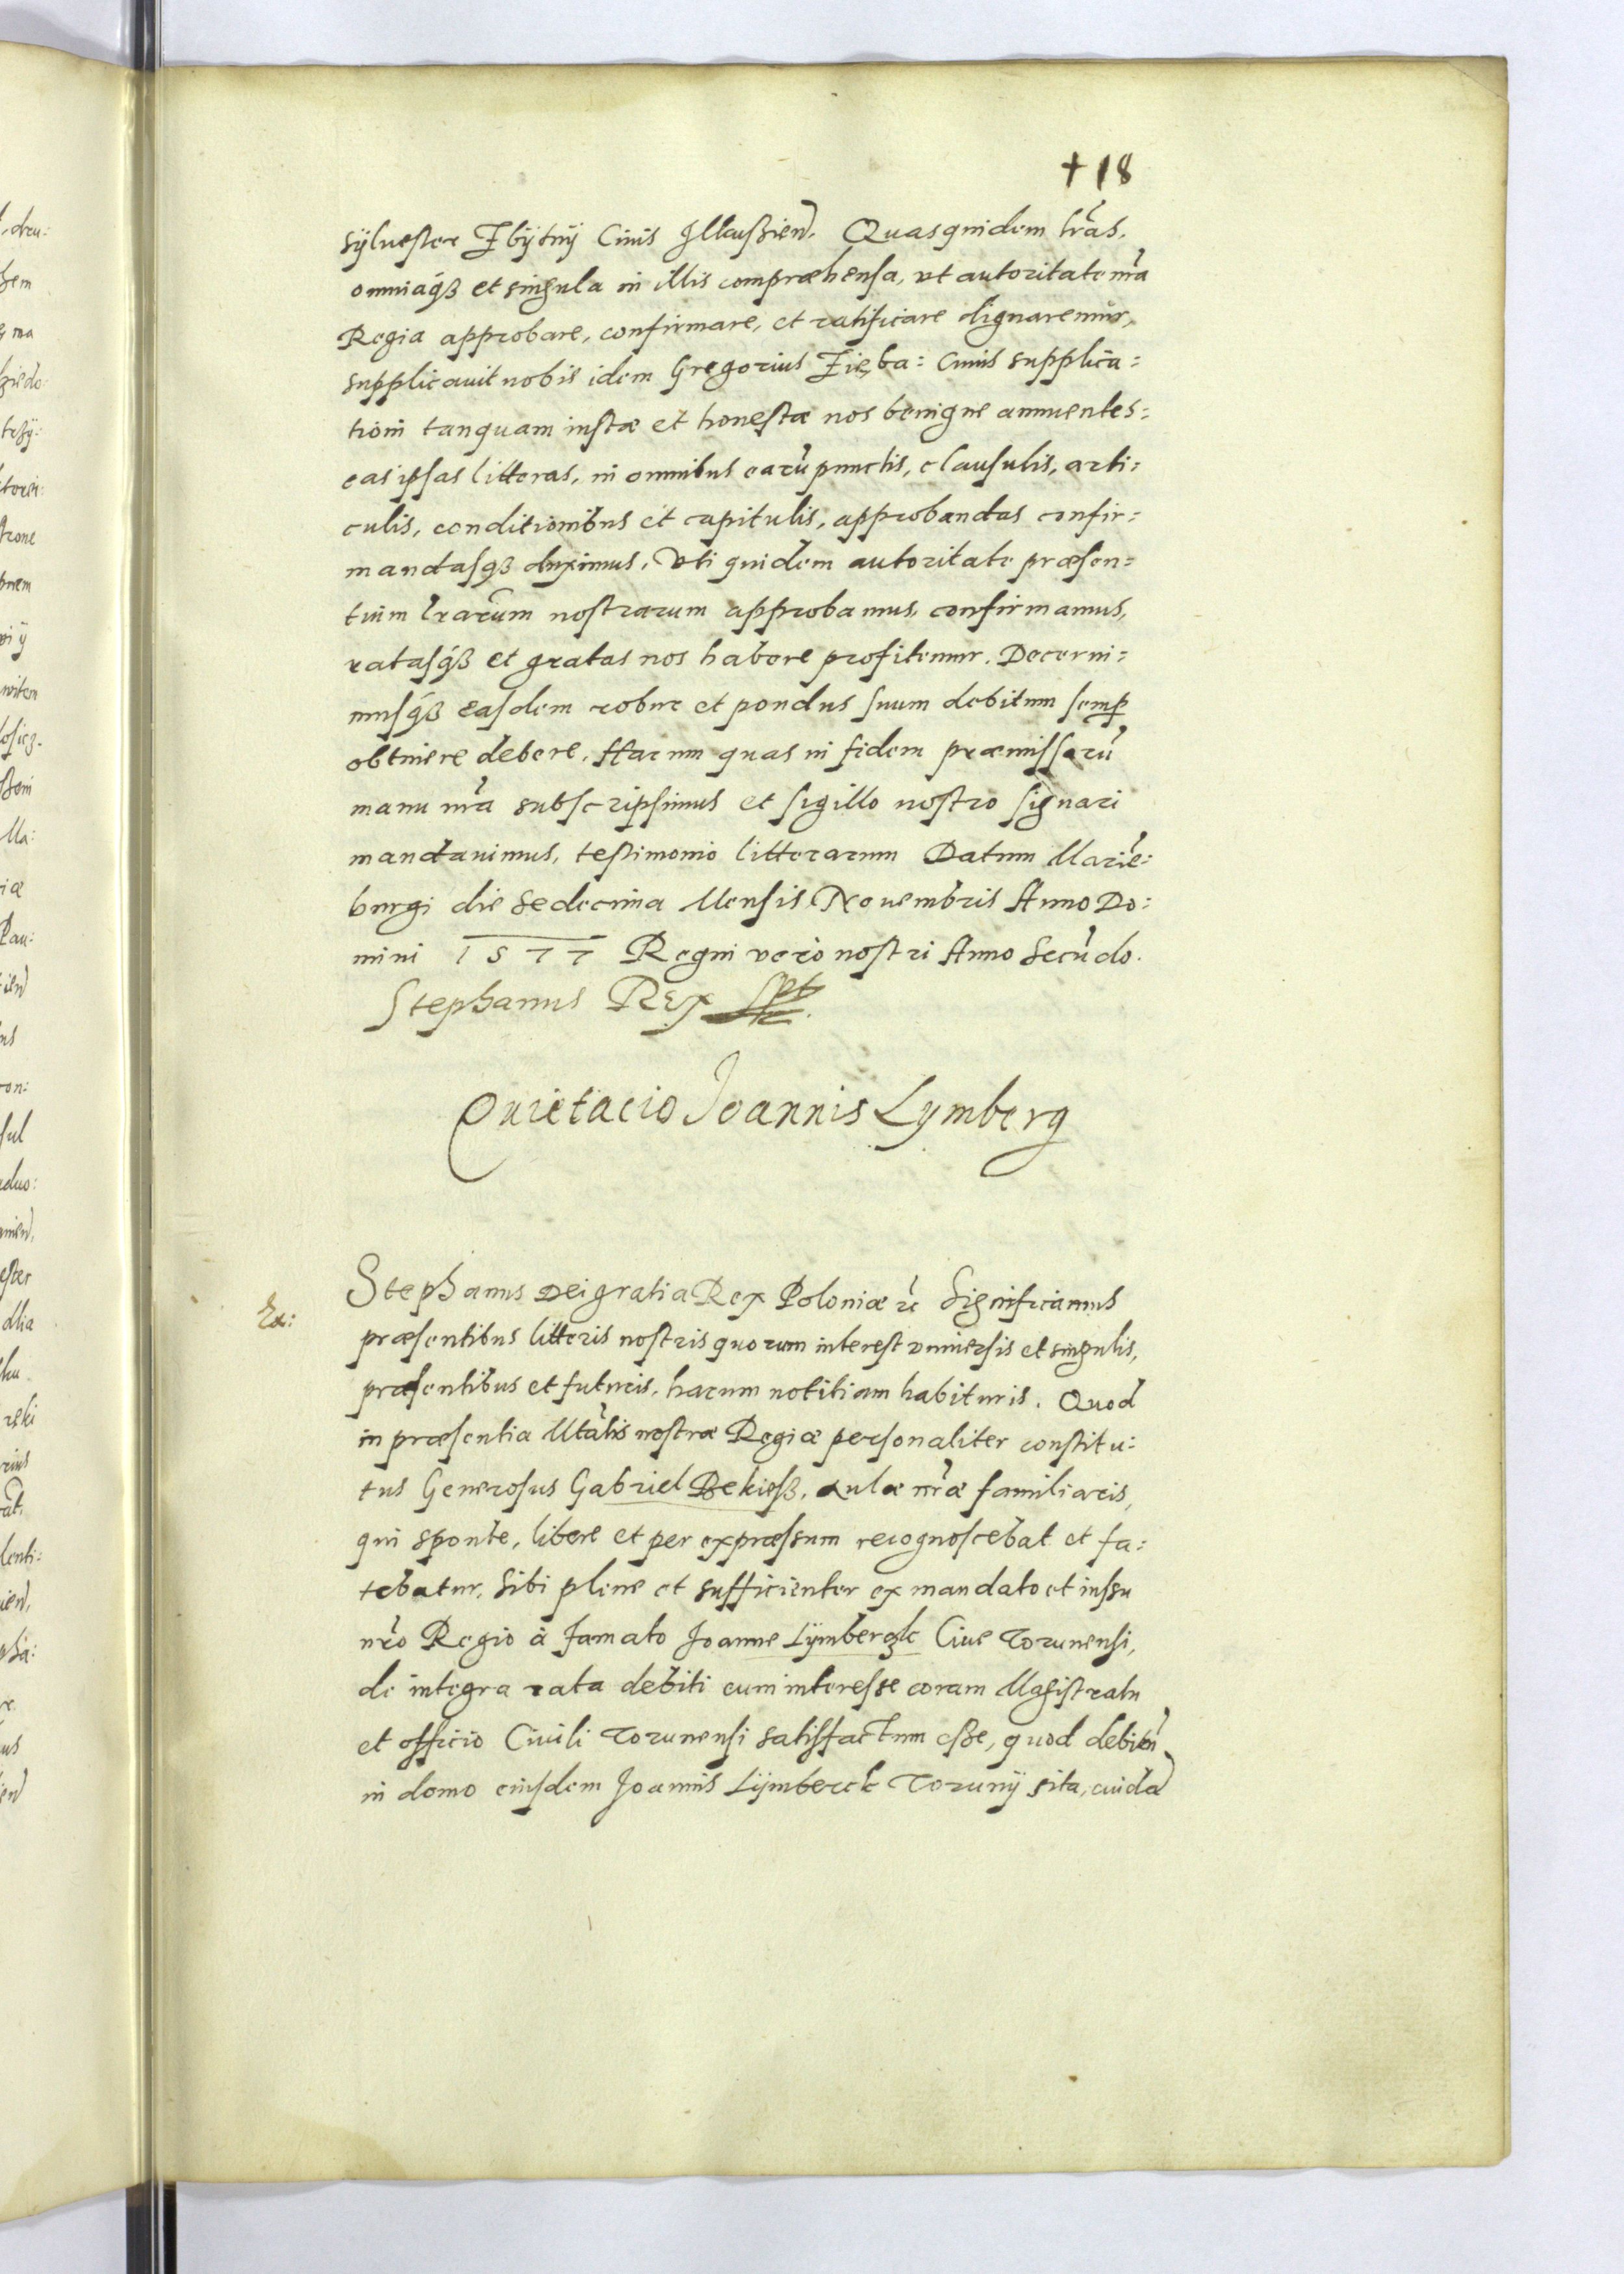 + 18
sÿluester Zbÿtnÿ Ciuis Illcußien. Quasquidem lras,
omniaqȝ et singula in illis compræhensa, vt autoritate nra
Regia approbare, confirmare, et ratificare dignaremur,
supplicauit nobis idem Gregorius Zięba: Cuius supplica:
tioni tanquam iustæ et honestæ nos benigne annuentes:
eas ipsas litteras, in omnibus earũ punctis, clausulis, arti:
culis, conditionibus et capitulis, approbandas confir:
mandasqȝ duximus, Vti quidem autoritate præsen:
tium lrarum nostrarum approbamus, confirmamus,
ratasqȝ et gratas nos habere profitemur. Decerni:
musqȝ easdem robur et pondus suum debitum semp
obtinere debere. Harum quas in fidem præmissorũ
manu nra subscripsimus et sigillo nostro signari
mandauimus, testimonio litterarum Datum Marie:
burgi die Sedecima Mensis Nouembris Anno Do:
mini 1577 Regni vero nostri Anno Secũdo.
Stephanus Rex
Quietacio Joannis Lymberg
Ex:
Stephanus Dei gratia Rex Poloniæ rc Significamus
præsentibus litteris nostris quorum interest vniuersis et singulis,
præsentibus et futuris, harum notitiam habituris. Quod
in præsentia Mtatis nostræ Regiæ personaliter constitu:
tus Generosus Gabriel Bekieß, aulæ nræ familiaris,
qui sponte, libere et per expræssum recognoscebat et fa:
tebatur, Sibi plene et sufficienter ex mandato et iussu
nro Regio à famato Joanne Lÿmbergk Ciue Torunensi,
de integra rata debiti cum interesse coram Magistratu
et officio Ciuili Torunensi satisfactum eße, quod debitũ
in domo eiusdem Joannis Lÿmberck Torunÿ sita, cuidã